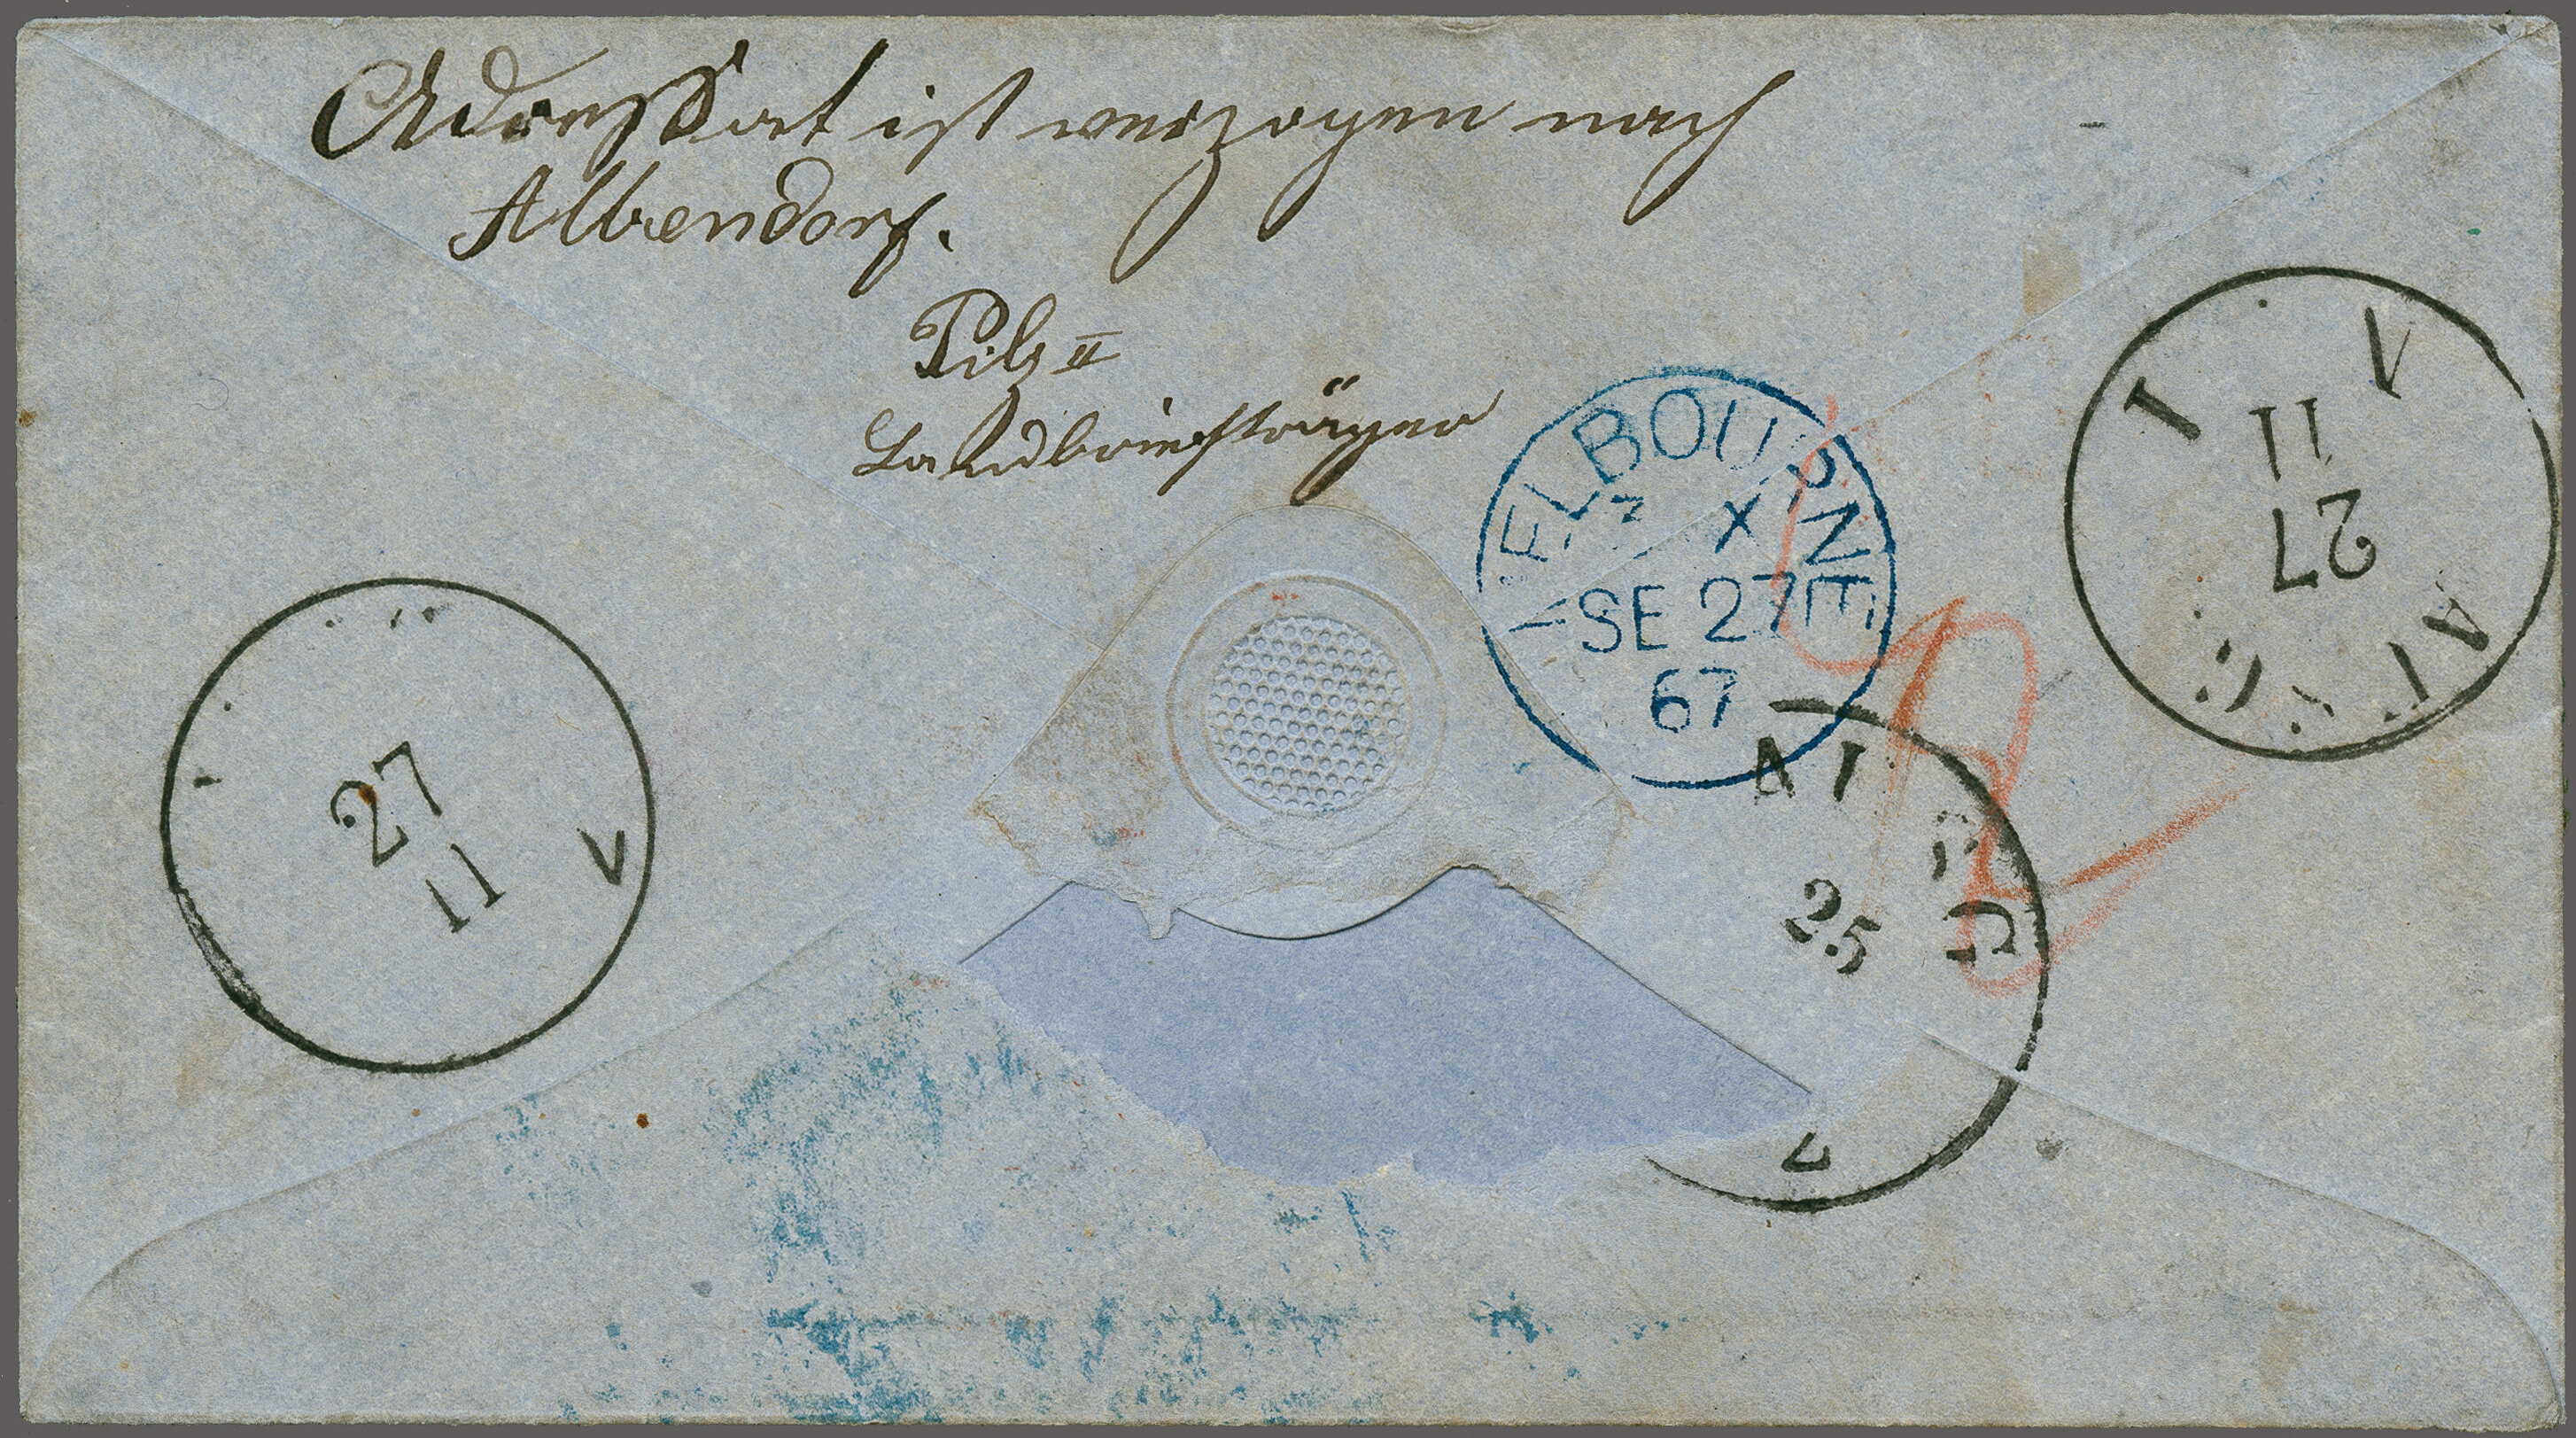 Adressat ist verzogen nach
Albendorf.
Pilz II
Landbriefträger
MELBOURNE
X
SE 27
67
27
11
V
27
11
V
25